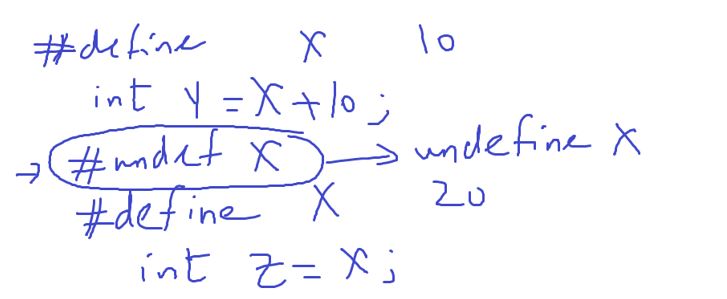 #define X 10
int y = X + 10;
→ #undef X → undefine X
#define X 20
int z = X;